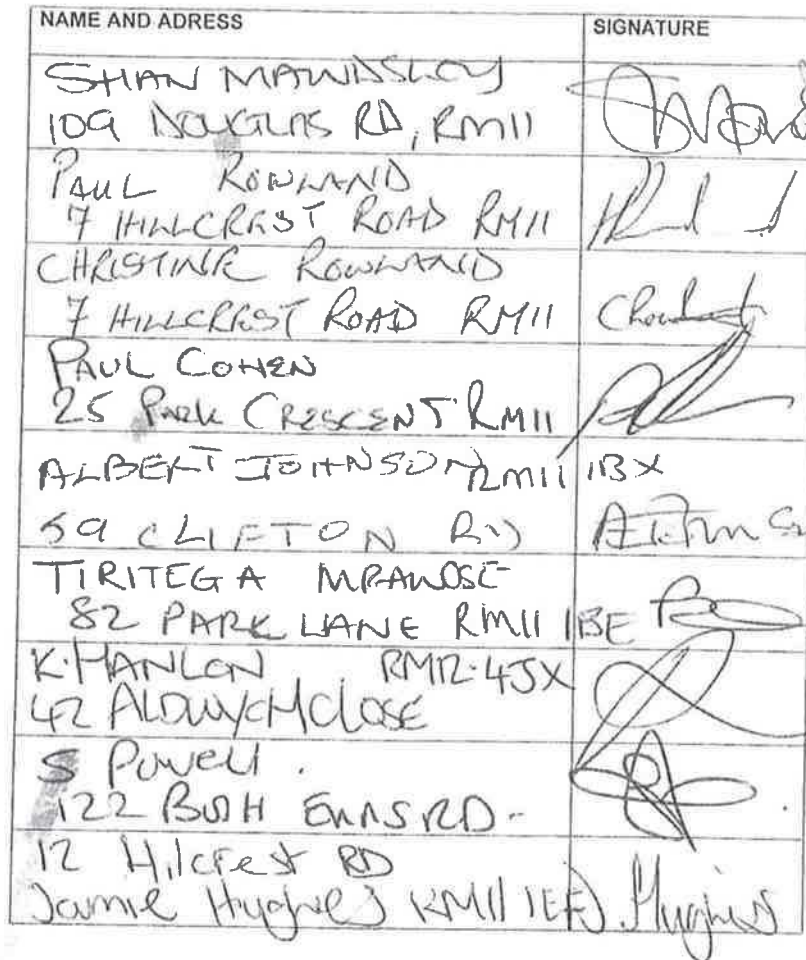 NAME AND ADRESS SIGNATURE
SHAN MAWDSLEY
109 DOUGLAS RD, RM11
PAUL ROWLAND
7 HILLCREST ROAD RM11
CHRISTINE ROWLAND
7 HILLCREST ROAD RM11
PAUL COHEN
25 PARK CRESCENT RM11
ALBERT JOHNSON RM11 1BX
59 CLIFTON RD
TIRITEGA
82 PARK LANE RM11 1BE
K. HANLON RM12-4JX
42 ALDWYCH CLOSE
S Powell.
122 RD-
12 Hilcrest RD
Jamie Hughes RM11 1EF J. Hughes